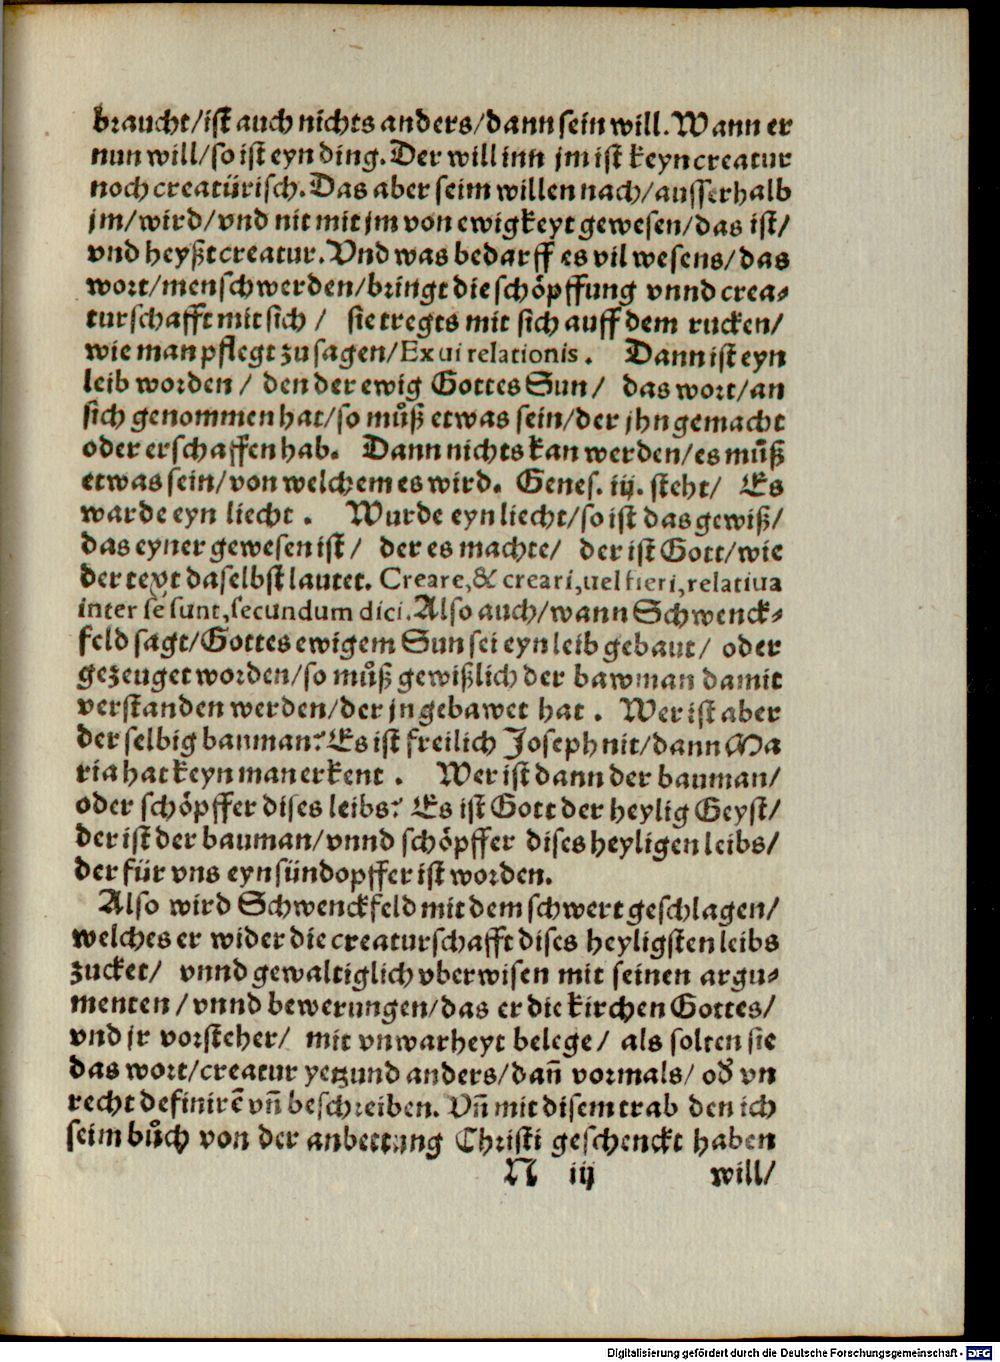 braucht/ist auch nichts anders/dann sein will. Wann er
nun will/so ist eyn ding. Der will inn jm ist keyn creatur
noch creatürisch. Das aber seim willen nach/ausserhalb
jm/wird/vnd nit mit jm von ewigkeyt gewesen/das ist/
vnd heyßt creatur. Vnd was bedarff es vil wesens/das
wort/mensch werden/bringt die schöpffung vnnd crea⸗
turschafft mit sich / sie tregts mit sich auff dem rucken/
wie man pflegt zu sagen/Ex ui relationis. Dann ist eyn
leib worden / den der ewig Gottes Sun/ das wort/an
sich genommen hat/so můß etwas sein/der jhn gemacht
oder erschaffen hab. Dann nichts kan werden/es můß
etwas sein/von welchem es wird. Genes. iij. steht/ Es
warde eyn liecht. Wurde eyn liecht/so ist das gewiß/
das eyner gewesen ist / der es machte/ der ist Gott/wie
der text daselbst lautet. Creare,& creari, uel fieri, relatiua
inter se sunt, secundum dici. Also auch/wann Schwenck⸗
feld sagt/Gottes ewigem Sun sei eyn leib gebaut/ oder
gezeuget worden/so můß gewißlich der bawman damit
verstanden werden/der jn gebawet hat. Wer ist aber
der selbig bauman? Es ist freilich Joseph nit/dann Ma
ria hat keyn man erkent. Wer ist dann der bauman/
oder schöpffer dises leibs? Es ist Gott der heylig Geyst/
der ist der bauman/vnnd schöpffer dises heyligen leibs/
der für vns eyn sündopffer ist worden.
Also wird Schwenckfeld mit dem schwert geschlagen/
welches er wider die creaturschafft dises heyligsten leibs
zucket/ vnnd gewaltiglich vberwisen mit seinen argu⸗
menten / vnnd bewerungen/das er die kirchen Gottes/
vnd jr vorsteher/ mit vnwarheyt belege/ als solten sie
das wort/creatur yetzund anders/dañ vormals/ oď vn
recht definirē vñ beschreiben. Vñ mit disem trab den ich
seim bůch von der anbettung Christi geschenckt haben
N iij will/
Digitalisierung gefördert durch die Deutsche Forschungsgemeinschaft - DFG